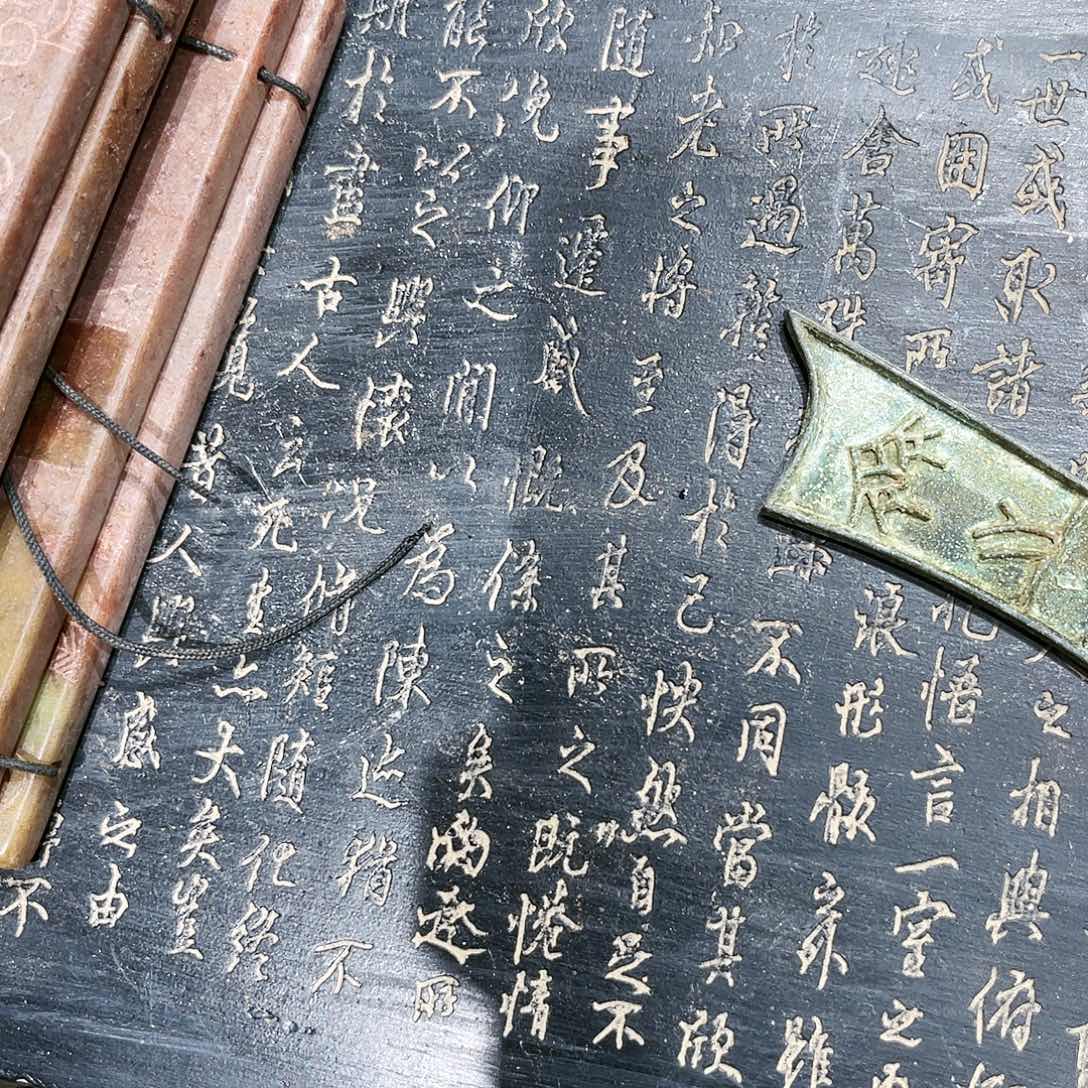 之相與俯
一世或取諸悟言一室之
或因寄所浪形骸外雖
趣舍萬殊不同當其欣
於所遇蹔得於己怏然自足不
知老之將至及其所之既惓情
隨事遷感慨係之矣向之所
欣俛仰之閒以為陳迹猶不
能不以之興懷況脩短隨化終
期於盡古人云死生亦大矣豈
攬昔人興感之由
不